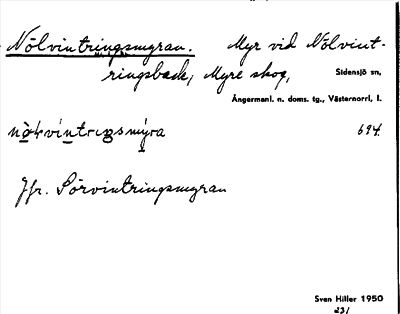 Nölvintringsmyran. Myr vid Nölvint-
ringsback, Myre skog, Sidensjö sn,
Ångermanl. n. doms. tg., Västernorrl. l.
694.
Jfr. Sörvintringsmyran
Sven Hiller 1950
231